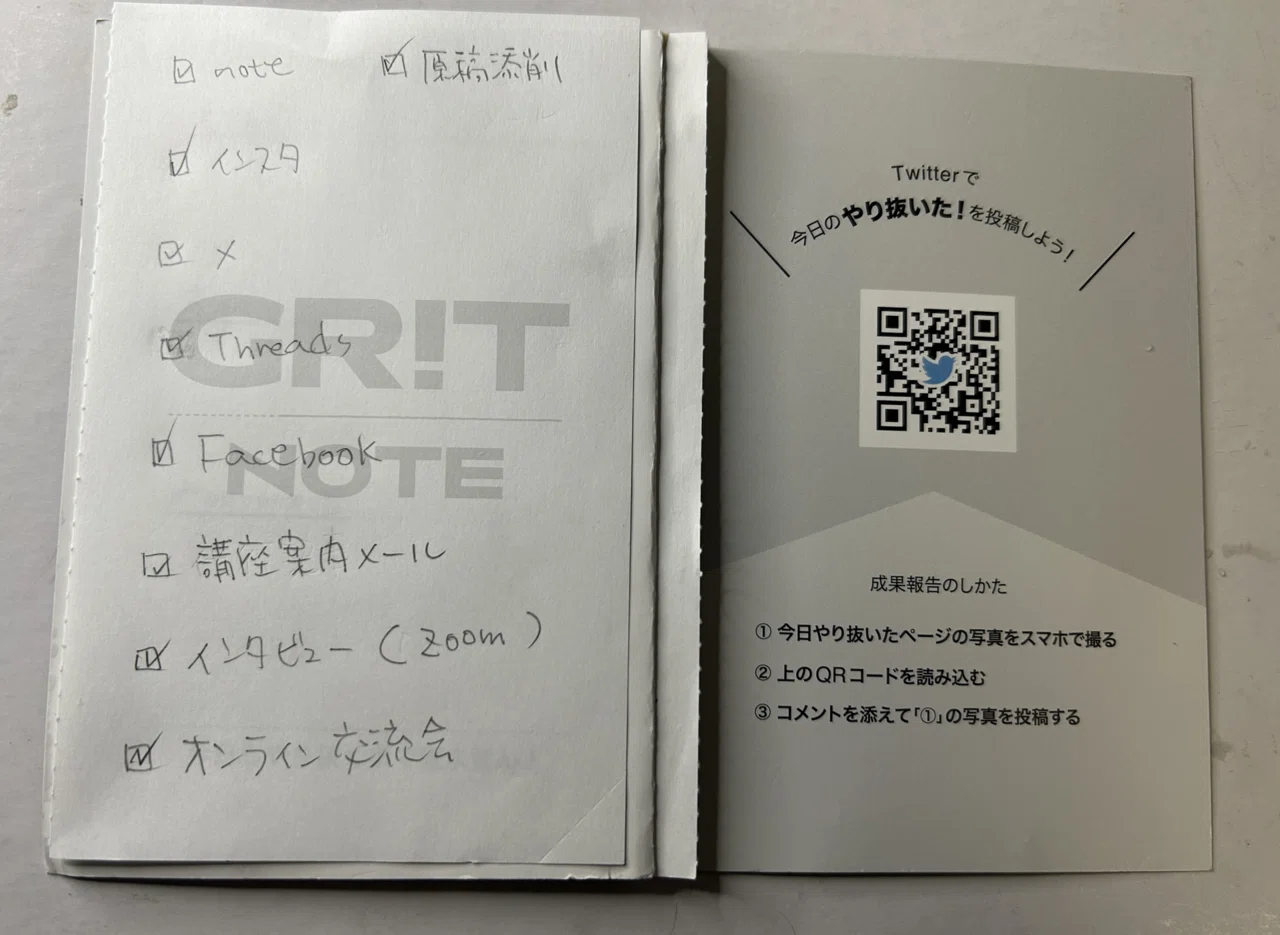 ☑ note ☑ 原稿添削
☑ インスタ
☑ X
☑ Threads
☑ Facebook
☑ 講座案内メール
☑ インタビュー(Zoom)
☑ オンライン交流会
GR!T
NOTE
Twitterで
今日のやり抜いた!を投稿しよう!
成果報告のしかた
① 今日やり抜いたページの写真をスマホで撮る
② 上のQRコードを読み込む
③ コメントを添えて「①」の写真を投稿する